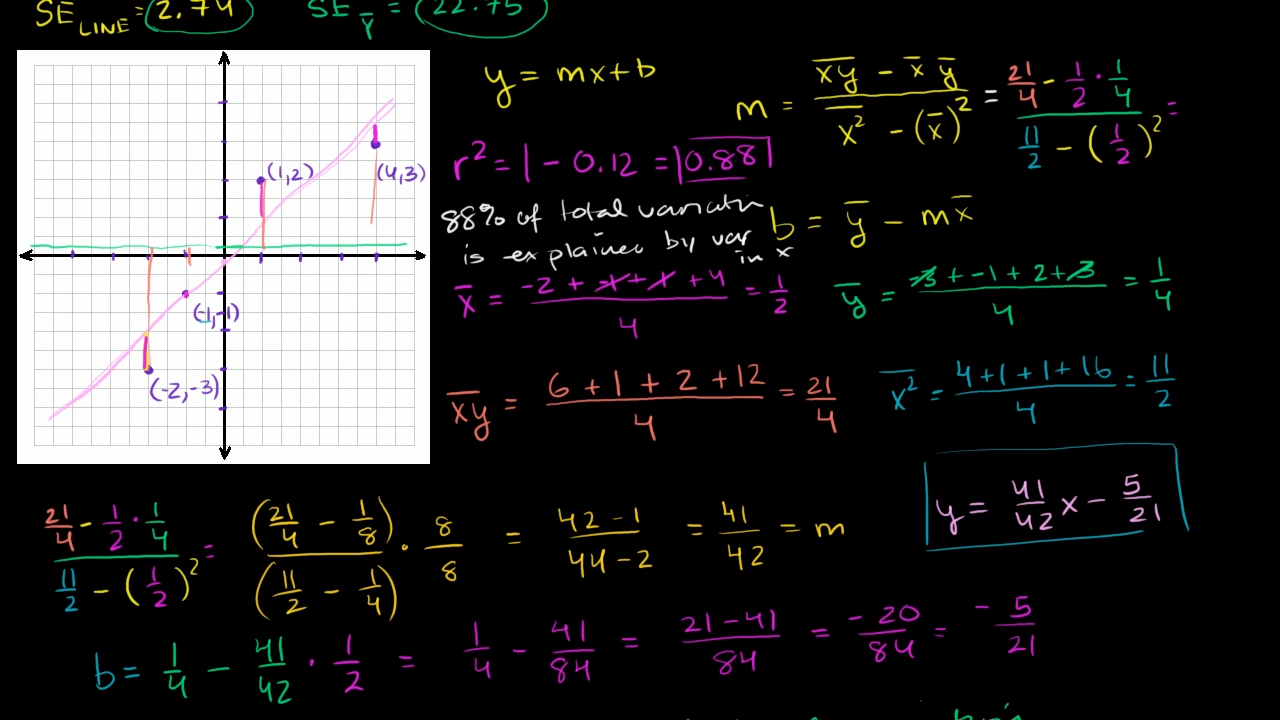 SE_LINE = 2.74    SE_ȳ = 22.75
y = mx+b
m = (x̅y̅ - x̅ y̅)/(x̅²̅ - (x̅)²) = (21/4 - 1/2 · 1/4)/(11/2 - (1/2)²) =
r² = 1 - 0.12 = 0.88
88% of total variatn
is explained by var
in x
b = y̅ - mx̅
(1,2)
(4,3)
(-1,-1)
(-2,-3)
x̅ = (-2 + -1 + 1 + 4)/4 = 1/2
y̅ = (-3 + -1 + 2 + 3)/4 = 1/4
x̅y̅ = (6 + 1 + 2 + 12)/4 = 21/4
x̅²̅ = (4+1+1+16)/4 = 11/2
y = 41/42 x - 5/21
(21/4 - 1/2 · 1/4)/(11/2 - (1/2)²) = (21/4 - 1/8)/(11/2 - 1/4) · 8/8 = (42-1)/(44-2) = 41/42 = m
b = 1/4 - 41/42 · 1/2 = 1/4 - 41/84 = (21-41)/84 = -20/84 = -5/21